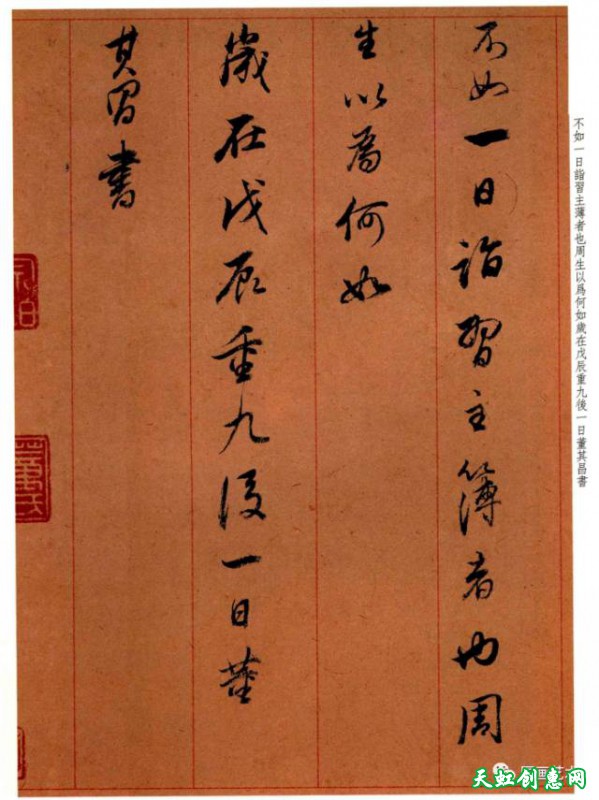 不如一日詣習主薄者也周生以爲何如歲在戊辰重九後一日董其昌書
不如一日詣習主簿者也周
生以為何如
歲在戊辰重九後一日董
其昌書
天虹创惠网